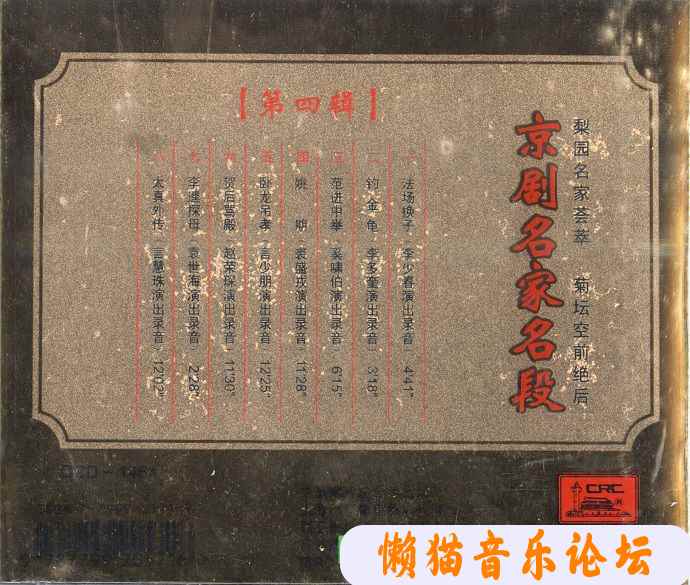 梨园名家荟萃 菊坛空前绝后
京剧名家名段
【第四辑】
一 法场换子（李少春演出录音）4'41"
二 钓金龟（李多奎演出录音）3'18"
三 范进中举（奚啸伯演出录音）6'15"
四 姚期（裘盛戎演出录音）11'28"
五 卧龙吊孝（言少朋演出录音）12'25"
六 贺后骂殿（赵荣琛演出录音）11'30"
七 李逵探母（袁世海演出录音）2'28"
八 太真外传（言慧珠演出录音）
CRC
懒猫音乐论坛